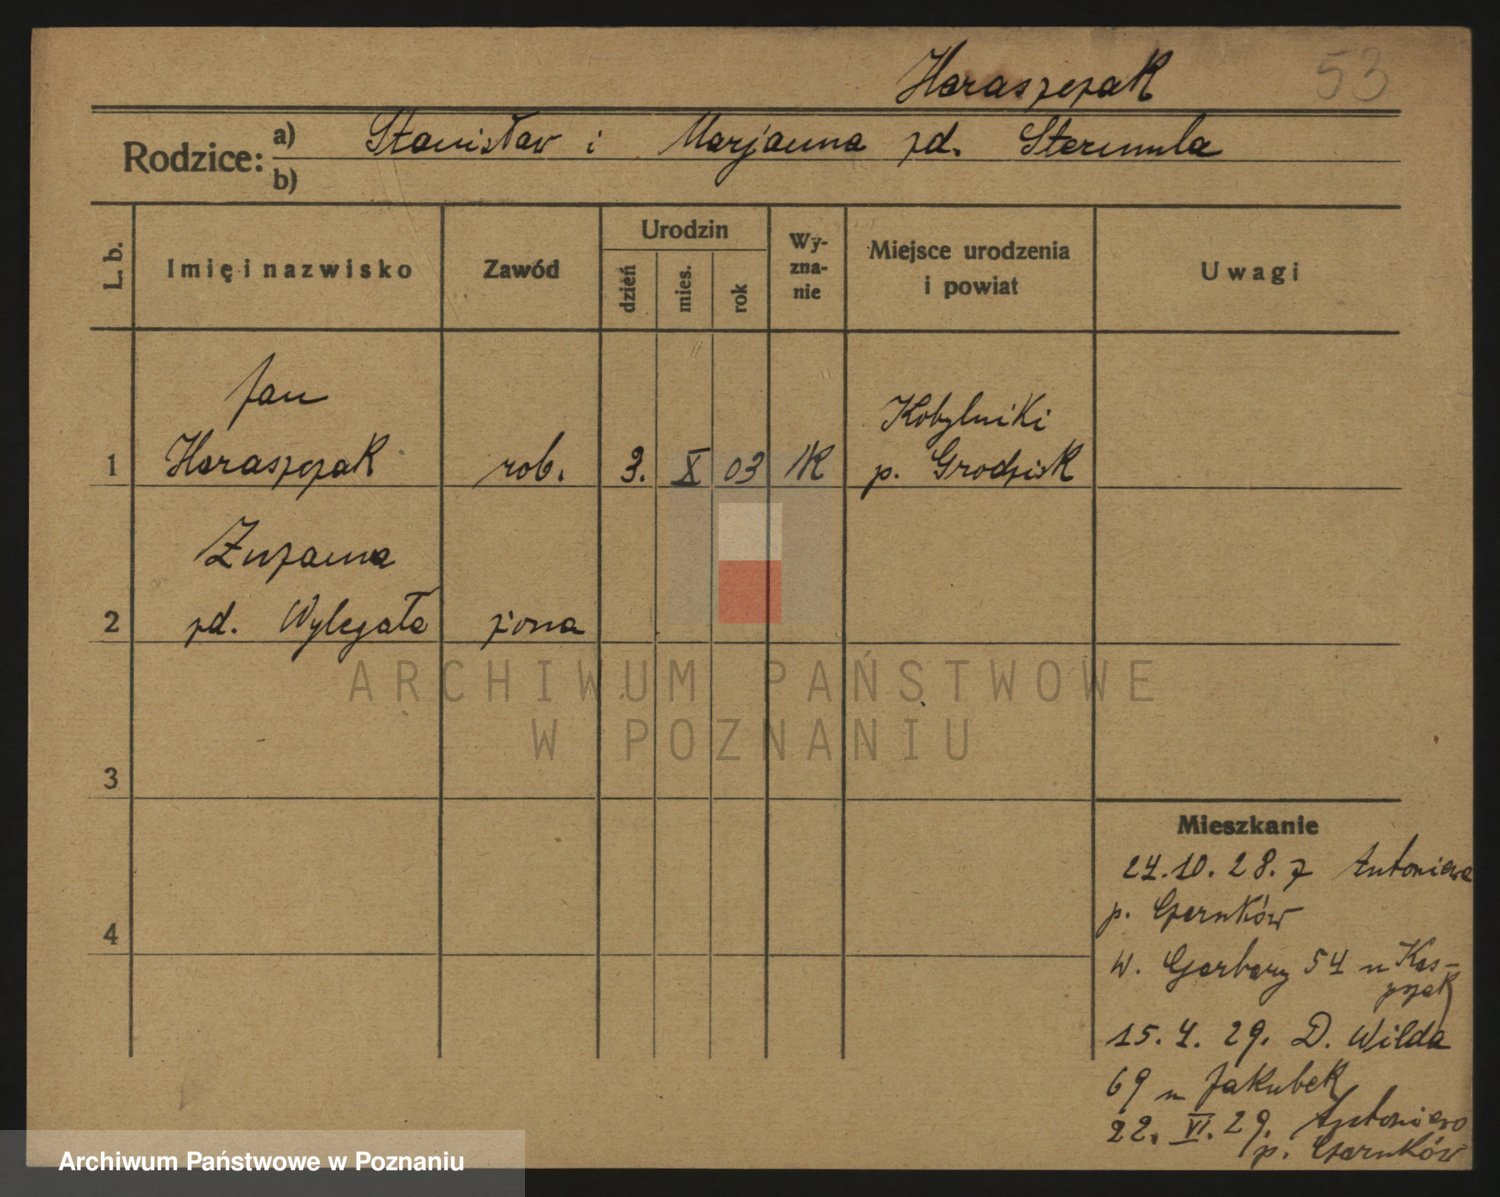 Haraszczak
53
Rodzice:
a) Stanisław i Marjanna zd. Stermula
b)
L. b.
Imię i nazwisko
Zawód
Urodzin
dzień
mies.
rok
Wy-
zna-
nie
Miejsce urodzenia
i powiat
Uwagi
Jan
1 Haraszczak rob. 3. X 03 rK Kobylniki
p. Grodzisk
Zuzanna
2 zd. Wylegała żona
3
4
Mieszkanie
24.10.28. z Antoniewo
p. Czarnków
W. Garbary 54 u Kas-
pzak
15. 4. 29. D. Wilda
69 u Jakubek
22. VI. 29. Antoniewo
p. Czarnków
ARCHIWUM PAŃSTWOWE
W POZNANIU
Archiwum Państwowe w Poznaniu